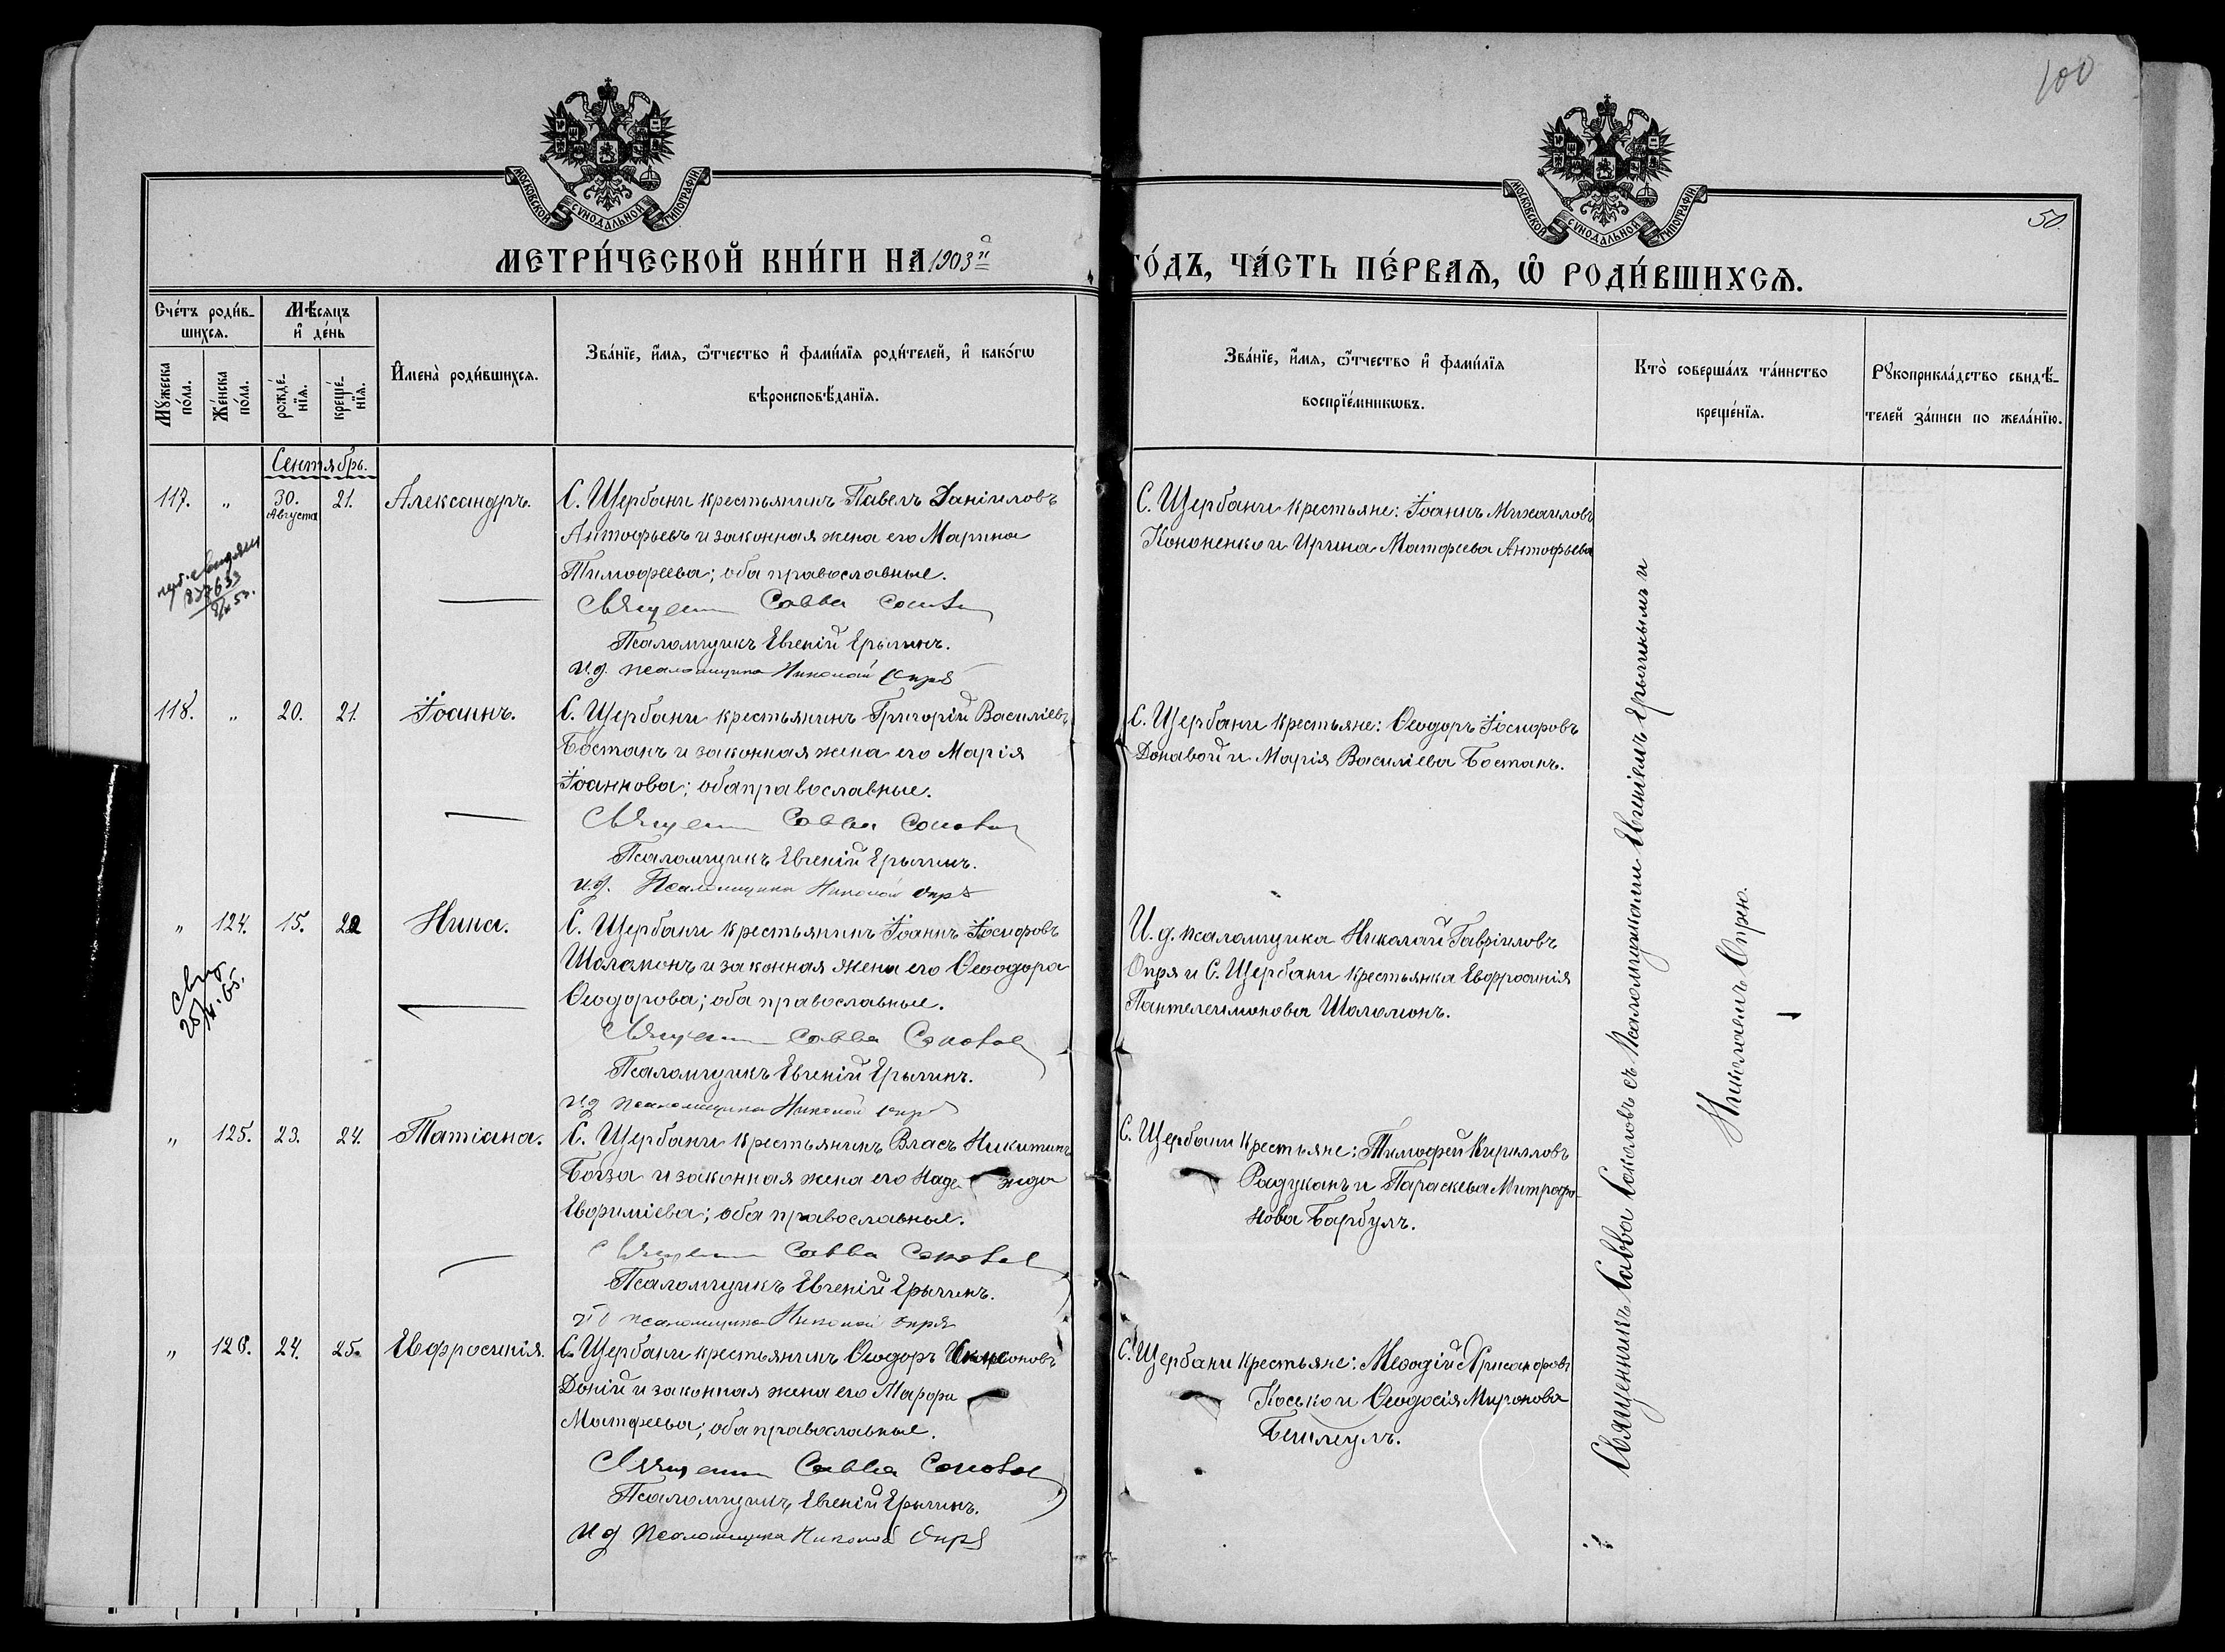 100
50.
МОСКОВСКОЙ СУНОДАЛЬНОЙ ТИПОГРАФІИ
МОСКОВСКОЙ СУНОДАЛЬНОЙ ТИПОГРАФІИ
МЕТРИ́ЧЕСКОЙ КНИ́ГИ НА 1903й
ГО́ДЪ, ЧА́СТЬ ПЕ́РВАѦ, Ѡ РОДИ́ВШИХСѦ.
Сче́тъ роди́в-
шихсѧ.
Мѣ́сѧцъ
и҆ де́нь
Мꙋ́жеска
по́ла.
Же́нска
по́ла.
рожде́-
нїѧ.
креще́-
нїѧ.
И҆мена̀ роди́вшихсѧ.
Зва́нїе, и҆́мѧ, ѻ҆́тчество и҆ фами́лїѧ роди́телей, и҆ како́гѡ
вѣроисповѣ́данїѧ.
Зва́нїе, и҆́мѧ, ѻ҆́тчество и҆ фами́лїѧ
воспрїе́мникѡвъ.
Кто̀ соверша́лъ та́инство
креще́нїѧ.
Рꙋкоприкла́дство свидѣ́-
телей за́писи по жела́нїю.
Сентябрь.
117. „ 30. Августа 21. Александръ.
С. Щербани крестьянинъ Павелъ Даніиловъ
Антофьевъ и законная жена его Марина
Тимофеева; оба православные.
Священ Савва Соколов
Псаломщикъ Евгеній Ерыгинъ.
И.д. псаломщика Николай Опря
С. Щербани крестьяне: Іоаннъ Михаиловъ
Кононенко и Ирина Матфеева Антофьева
118. „ 20. 21. Іоаннъ.
С. Щербани крестьянинъ Григорій Василіевъ
Бостанъ и законная жена его Марія
Іоаннова; оба православные.
Священ Савва Соколов
Псаломщикъ Евгеній Ерыгинъ.
И.д. Псаломщика Николай Опря
С. Щербани крестьяне: Ѳеодоръ Іосифовъ
Донавой и Марія Василіева Бостанъ.
„ 124. 15. 22 Нина.
С. Щербани крестьянинъ Іоаннъ Іосифовъ
Шаламонъ и законная жена его Ѳеодора
Ѳеодорова; оба православные.
Священ Савва Соколов
Псаломщикъ Евгеній Ерыгинъ.
И.д псаломщика Николай Опря
И. д. псаломщика Николай Гавріиловъ
Опря и С. Щербани крестьянка Евфросинія
Пантелеимонова Шаламонъ.
„ 125. 23. 24. Татіана.
С. Щербани крестьянинъ Власъ Никитинъ
Богза и законная жена его Надежда
Евфиміева; оба православные.
Священ Савва Соколов
Псаломщикъ Евгеній Ерыгинъ.
псаломщика Николай Опря
С. Щербани крестьяне: Тимофей Кирилловъ
Радуканъ и Параскева Митрофа-
нова Барбулъ.
„ 126. 24. 25. Евфросинія.
С. Щербани крестьянинъ Ѳеодоръ
Доній и законная жена его Марфа
Матфеева; оба православные.
Священ Савва Соколов
Псаломщикъ Евгеній Ерыгинъ.
И д псаломщика Николай Опря
С. Щербани крестьяне: Меѳодій Хрисанфовъ
Косько и Ѳеодосія Миронова
Бешлеулъ.
Священникъ Савва Соколовъ съ Псаломщиками Евгеніемъ Ерыгинымъ и
Николаемъ Опрею.